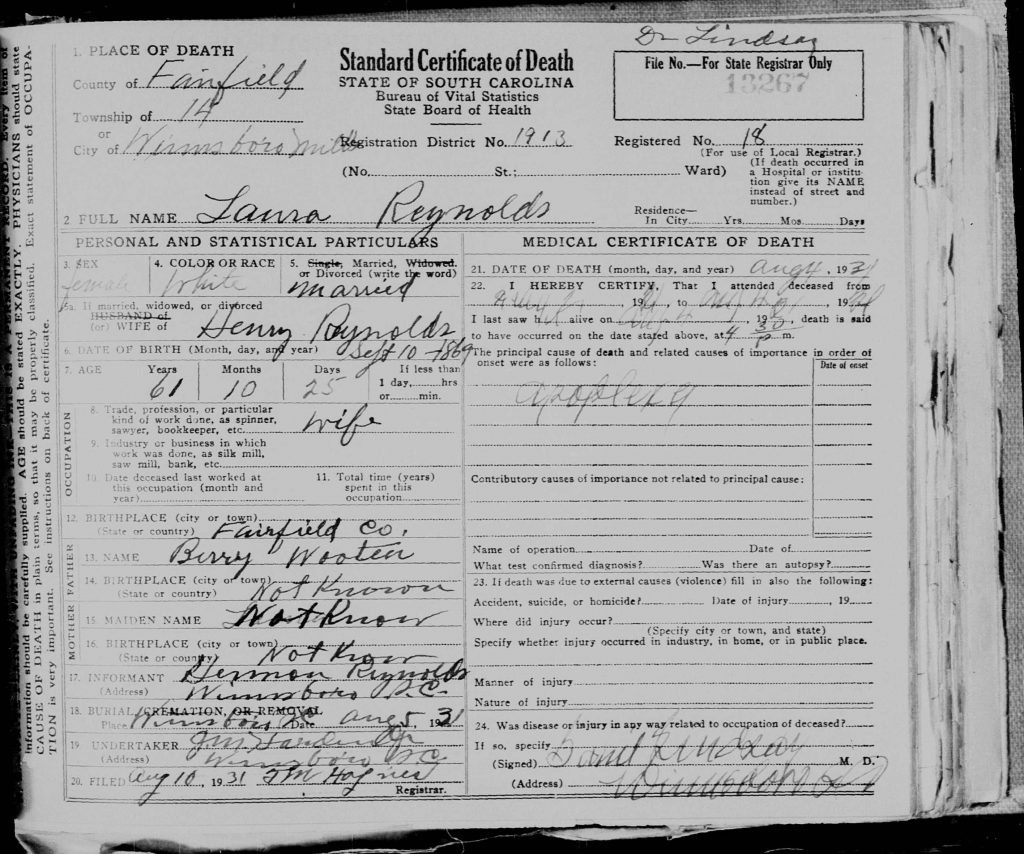 Dr Lindsay
1. PLACE OF DEATH
County of Fairfield
Township of 14
or
City of Winnsboro Mills
Standard Certificate of Death
STATE OF SOUTH CAROLINA
Bureau of Vital Statistics
State Board of Health
File No.—For State Registrar Only
13267
Registration District No. 1913
Registered No. 18
(For use of Local Registrar.)
(No. St.; Ward)
(If death occurred in
a Hospital or institu-
tion give its NAME
instead of street and
number.)
2 FULL NAME Laura Reynolds
Residence—
In City Yrs. Mos. Days
PERSONAL AND STATISTICAL PARTICULARS
3. SEX
female
4. COLOR OR RACE
white
5. Single, Married, Widowed,
or Divorced (write the word)
married
5a. If married, widowed, or divorced
HUSBAND of
(or) WIFE of Henry Reynolds
6. DATE OF BIRTH (Month, day, and year) Sept 10 - 1869
7. AGE Years Months Days If less than
61 10 25 1 day, hrs
or min.
OCCUPATION
8. Trade, profession, or particular
kind of work done, as spinner,
sawyer, bookkeeper, etc. wife
9. Industry or business in which
work was done, as silk mill,
saw mill, bank, etc.
10. Date deceased last worked at
this occupation (month and
year)
11. Total time (years)
spent in this
occupation
12. BIRTHPLACE (city or town)
(State or country) Fairfield Co.
FATHER
13. NAME Berry Wooten
14. BIRTHPLACE (city or town)
(State or country) Not Known
MOTHER
15. MAIDEN NAME Not Know
16. BIRTHPLACE (city or town)
(State or country) Not Know
17. INFORMANT Herman Reynolds
(Address) Winnsboro S.C.
18. BURIAL, CREMATION, OR REMOVAL
Place Winnsboro SC Date Aug 5, 1931
19. UNDERTAKER J.M.
(Address) Winnsboro S.C.
20. FILED Aug 10, 1931 Haynes
Registrar.
MEDICAL CERTIFICATE OF DEATH
21. DATE OF DEATH (month, day, and year) Aug 4, 1931
22. I HEREBY CERTIFY, That I attended deceased from
, 19 , to , 19
I last saw h alive on , 19 , death is said
to have occurred on the date stated above, at 4 30 P m.
The principal cause of death and related causes of importance in order of
onset were as follows:
Date of onset
apoplexy
Contributory causes of importance not related to principal cause:
Name of operation Date of
What test confirmed diagnosis? Was there an autopsy?
23. If death was due to external causes (violence) fill in also the following:
Accident, suicide, or homicide? Date of injury , 19
Where did injury occur?
(Specify city or town, and state)
Specify whether injury occurred in industry, in home, or in public place.
Manner of injury
Nature of injury
24. Was disease or injury in any way related to occupation of deceased?
If so, specify
(Signed) Lindsay M. D.
(Address) Winnsboro
information should be carefully supplied. AGE should be stated EXACTLY. PHYSICIANS should state
CAUSE OF DEATH in plain terms, so that it may be properly classified. Exact statement of OCCUPA-
TION is very important. See instructions on back of certificate.